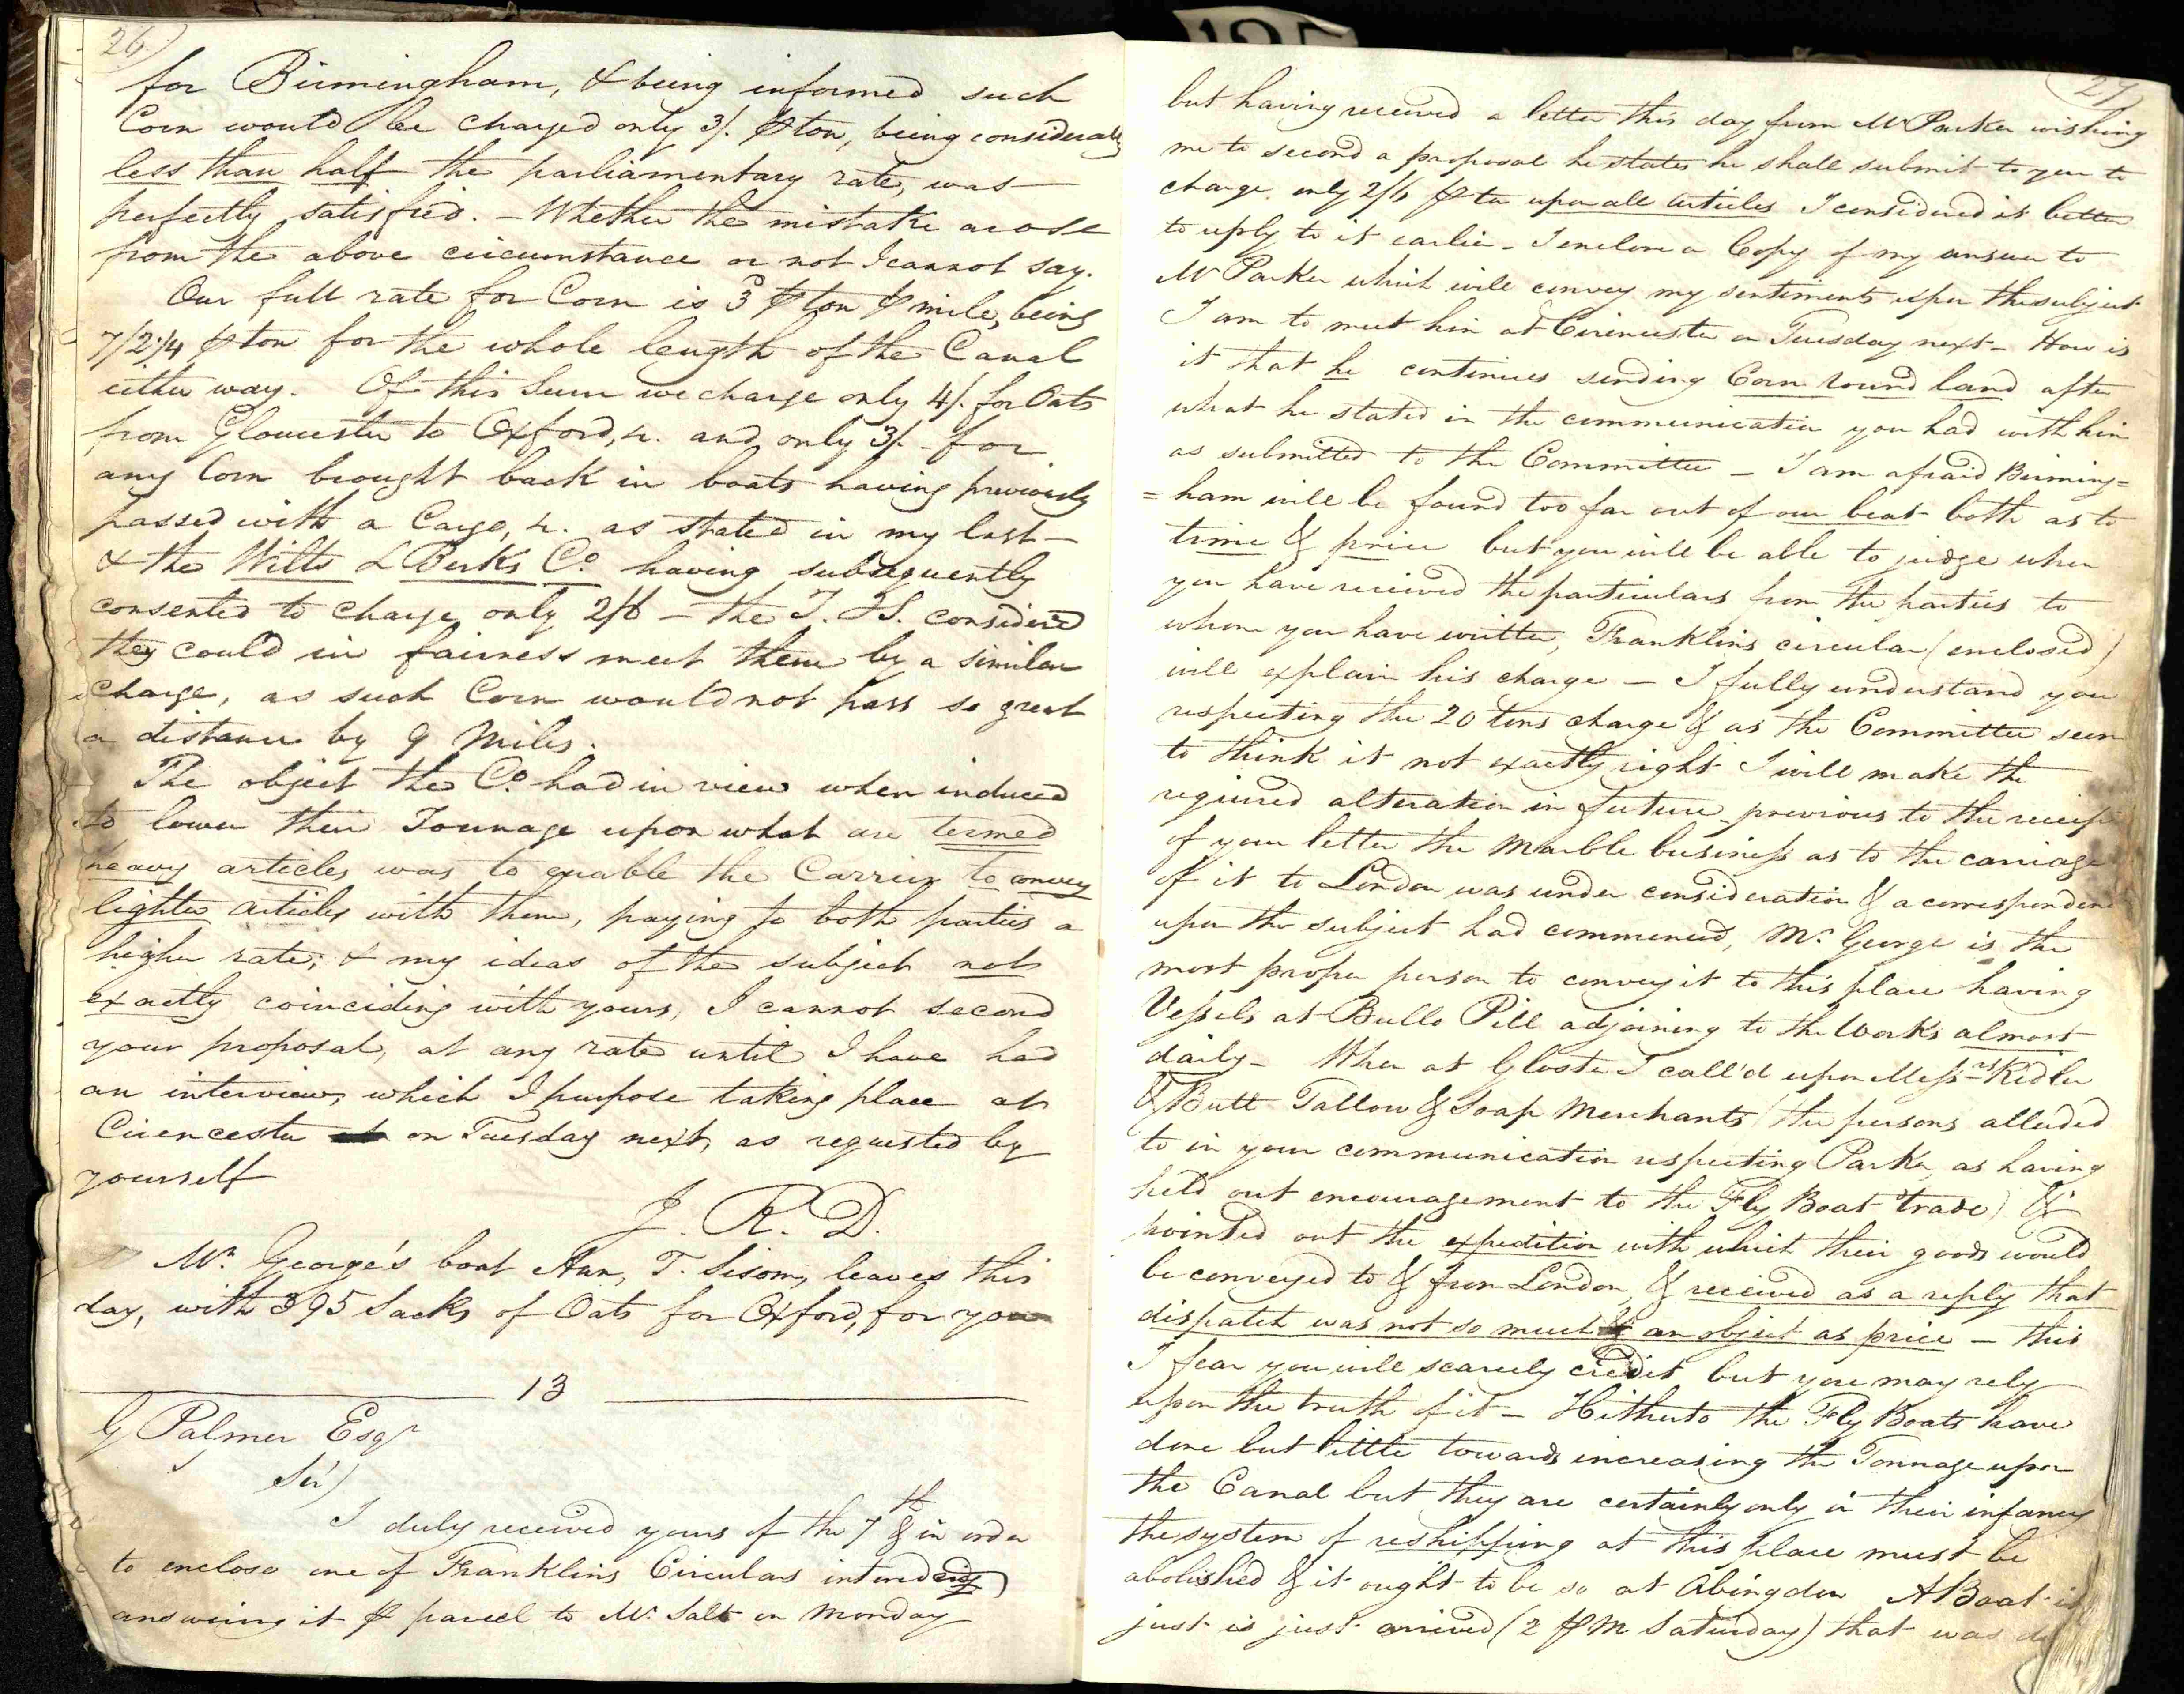 26
for Birmingham, & being informed such
Corn would be charged only 3/. ⅌ ton, being considerably
less than half the parliamentary rate, was
perfectly satisfied. - Whether the mistake arose
from the above circumstance or not I cannot say.
Our full rate for Corn is 3d ⅌ ton ⅌ mile, being
7/2¼ ⅌ ton for the whole length of the Canal
either way. Of this Sum we charge only 4/. for Oats
from Gloucester to Oxford, &c. and only 3/. for
any Corn brought back in boats having previously
passed with a Cargo, &c. as stated in my last -
& the Wilts & Berks Co. having subsequently
consented to charge only 2/6 - the T. & S. considered
they could in fairness meet them by a similar
charge, as such Corn would not pass so great
a distance by 9 Miles.
The object the Co. had in view when induced
to lower their Tonnage upon what are termed
heavy articles was to enable the Carriers to convey
lighter articles with them, paying to both parties a
higher rate; & my ideas of the subject not
exactly coinciding with yours, I cannot second
your proposal, at any rate until I have had
an interview, which I purpose taking place at
Cirencester on Tuesday next, as requested by
yourself
J. R. D.
Mr. George's boat Ann, T. Sisom, leaves this
day, with 395 Sacks of Oats for Oxford, for you
13
G Palmer Esqr
Sir)
I duly received yours of the 7th & in order
to enclose one of Franklins Circulars intended
answering it ⅌ parcel to Mr. Salt on Monday
27
but having received a letter this day from Mr Parker wishing
me to second a proposal he states he shall submit to you to
charge only 2/6 ⅌ ton upon all articles I considered it better
to reply to it earlier - I enclose a Copy of my answer to
Mr Parker which will convey my sentiments upon the subject
I am to meet him at Cirencester on Tuesday next - How is
it that he continues sending Corn round land after
what he stated in the communication you had with him
as submitted to the Committee - I am afraid Birming=
=ham will be found too far out of our beat both as to
time & price but you will be able to judge when
you have received the particulars from the parties to
whom you have written, Franklins circular (enclosed)
will explain his charge - I fully understand you
respecting the 20 tons charge & as the Committee seem
to think it not exactly right I will make the
required alteration in future - previous to the receipt
of your letter the Marble business as to the carriage
of it to London was under consideration & a correspondence
upon the subject had commenced, Mr. George is the
most proper person to convey it to this place having
Vessels at Bullo Pill adjoining to the Works almost
daily - When at Gloster I call'd upon Messrs Kidler
& Butt Tallow & Soap Merchants (the persons alluded
to in your communication respecting Parker, as having
held out encouragement to the Fly Boat trade) &
pointed out the expedition with which their goods would
be conveyed to & from London, & received as a reply that
dispatch was not so much an object as price - this
I fear you will scarcely credit but you may rely
upon the truth of it - Hitherto the Fly Boats have
done but little towards increasing the Tonnage upon
the Canal but they are certainly only in their infancy
the system of reshipping at this place must be
abolished & it ought to be so at Abingdon A Boat is
just is just arrived (2 PM Saturday) that was